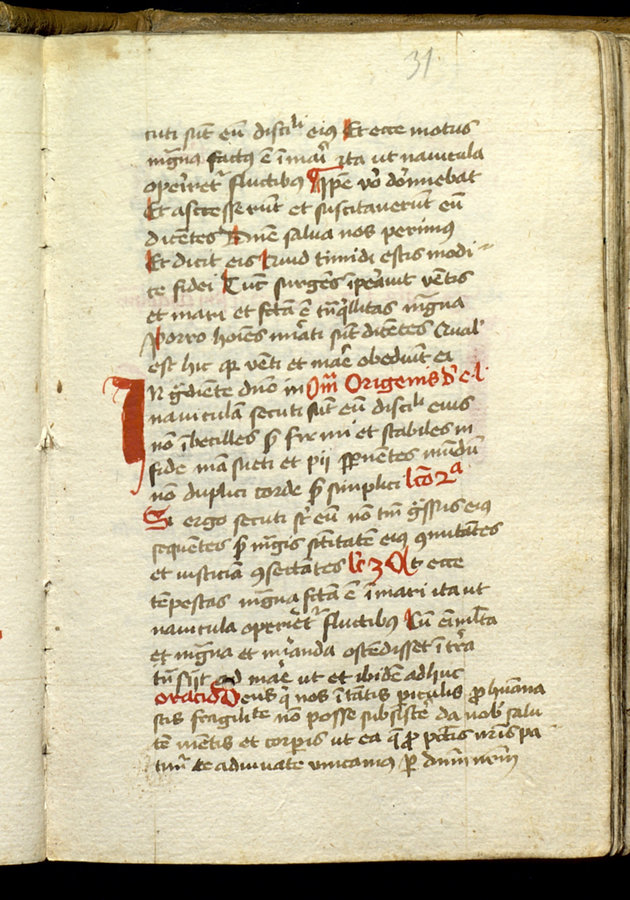 31
cuti sūt eū disciⁱⁱ eiꝰ Et ecce motus
mgͣna factꝰ ē ī mari ita ut nauicula
operiretʳ fluctibꝰ Ipͤe vͦo dormiebat
Et accesserunt et suscitauerunt eū
dicētes Dn̄e salua nos perimꝰ
Et dicit eis Quid timidi estis modi
ce fidei Tūc surgēs īpauit vētis
et mari et fcā ē tn̄qͣllitas mgͣna
Porro hoīes mirati sūt dicētes Qualʼ
est hic qꝛ vēti et mare obediūt ei
IN gͬdiēte dn̄o in Om̄ Origenis de ea l
nauiculā secuti sūt eū disciⁱⁱ eius
nō ībecilles sꝫ firmi et stabiles in
fide māsueti et pij spernētes mūdū
nō duplici corde sꝫ simplici lcō 2ᵃ
Si ergo secuti sꝉt eū nō tm̄ gͬssus eiꝰ
sequētes sꝫ mgͣis sc̄itatē eiꝰ ꝯmitātes
et iusticiā ꝯsectātes lc̄ 3 Et ecce
tēpestas mgͣna fcā ē ī mari ita ut
nauicula operiretʳ fluctibꝰ Cū eī mlͭa
et mgͣna et miranda ostēdisset ī tͬra
tn̄sijt ad mare ut et ibidē adhuc
oracio Deus qͥ nos ī tātis piculis ꝓ humana
stis fragilitͭe nō posse subsistͤe da nobʼ salu
tē mētis et corpis ut ea que ꝓ pctīs nr̄is pa
timʳ te adiuuāte vincamꝰ ꝑ dn̄m nrm̄